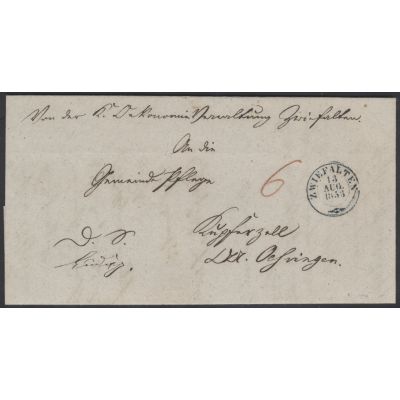 Von der K. Oekonomie Verwaltung Zwiefalten.
An die
Gemeinde Pflege
6
ZWIEFALTEN
13
AUG.
1853
D. S.
Kupferzell
OA. Oehringen.